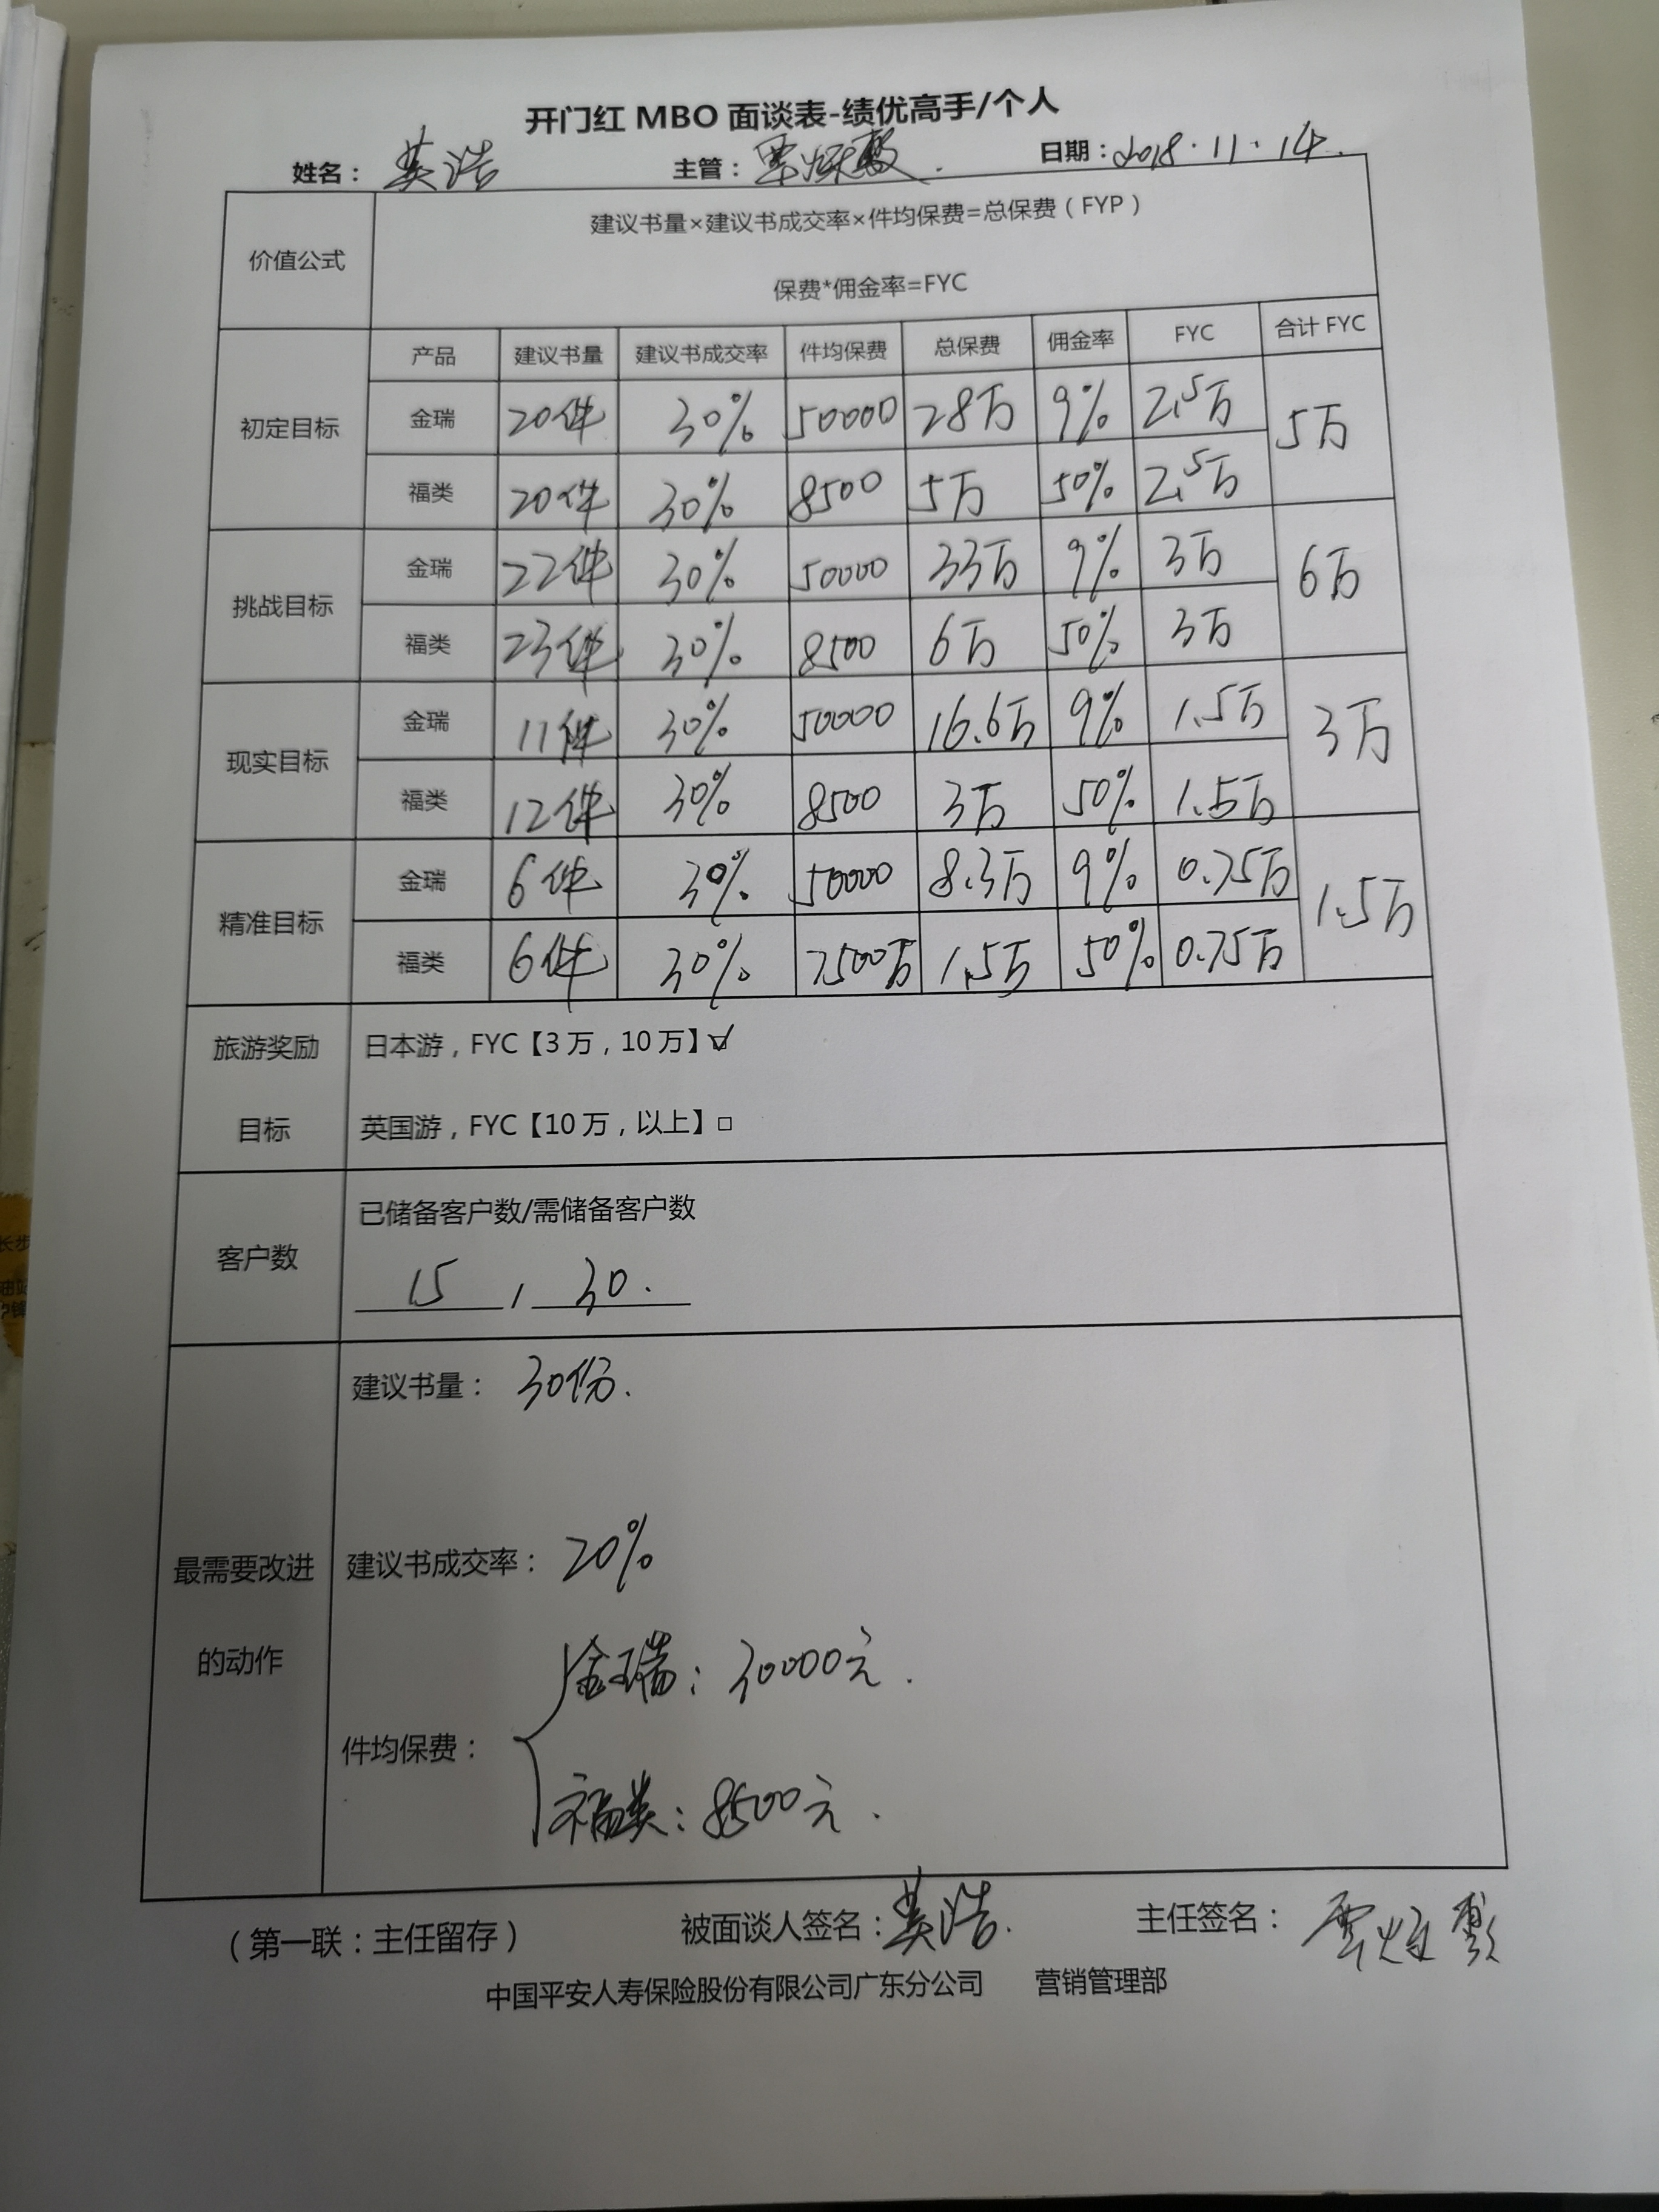 开门红 MBO 面谈表-绩优高手/个人
姓名： 英浩 主管： 日期：2018.11.14.
价值公式
建议书量×建议书成交率×件均保费=总保费（FYP）
保费*佣金率=FYC
产品 建议书量 建议书成交率 件均保费 总保费 佣金率 FYC 合计 FYC
初定目标
金瑞 20件 30% 50000 28万 9% 2.5万 5万
福类 20件 30% 8500 5万 50% 2.5万
挑战目标
金瑞 22件 30% 50000 33万 9% 3万 6万
福类 23件 30% 8500 6万 50% 3万
现实目标
金瑞 11件 30% 50000 16.6万 9% 1.5万 3万
福类 12件 30% 8500 3万 50% 1.5万
精准目标
金瑞 6件 30% 50000 8.3万 9% 0.75万 1.5万
福类 6件 30% 7500万 1.5万 50% 0.75万
旅游奖励
目标
日本游，FYC【3万，10万】☑
英国游，FYC【10万，以上】□
客户数
已储备客户数/需储备客户数
15 / 30.
最需要改进
的动作
建议书量： 30份.
建议书成交率： 20%
件均保费：
金瑞：30000元.
福类：8500元.
（第一联：主任留存） 被面谈人签名：英浩. 主任签名：
中国平安人寿保险股份有限公司广东分公司 营销管理部